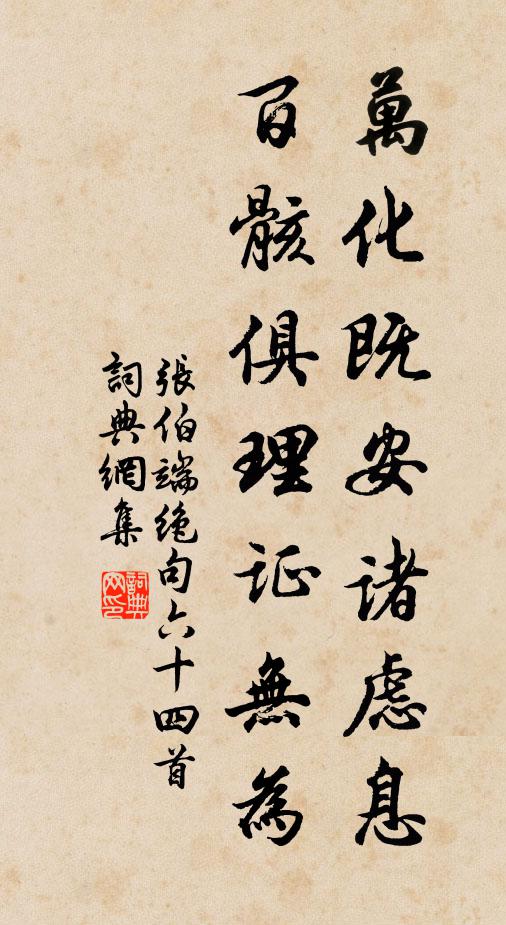 萬化既安諸慮息
百骸俱理证無為
張伯端绝句六十四首
詞典網集
詞典
网印